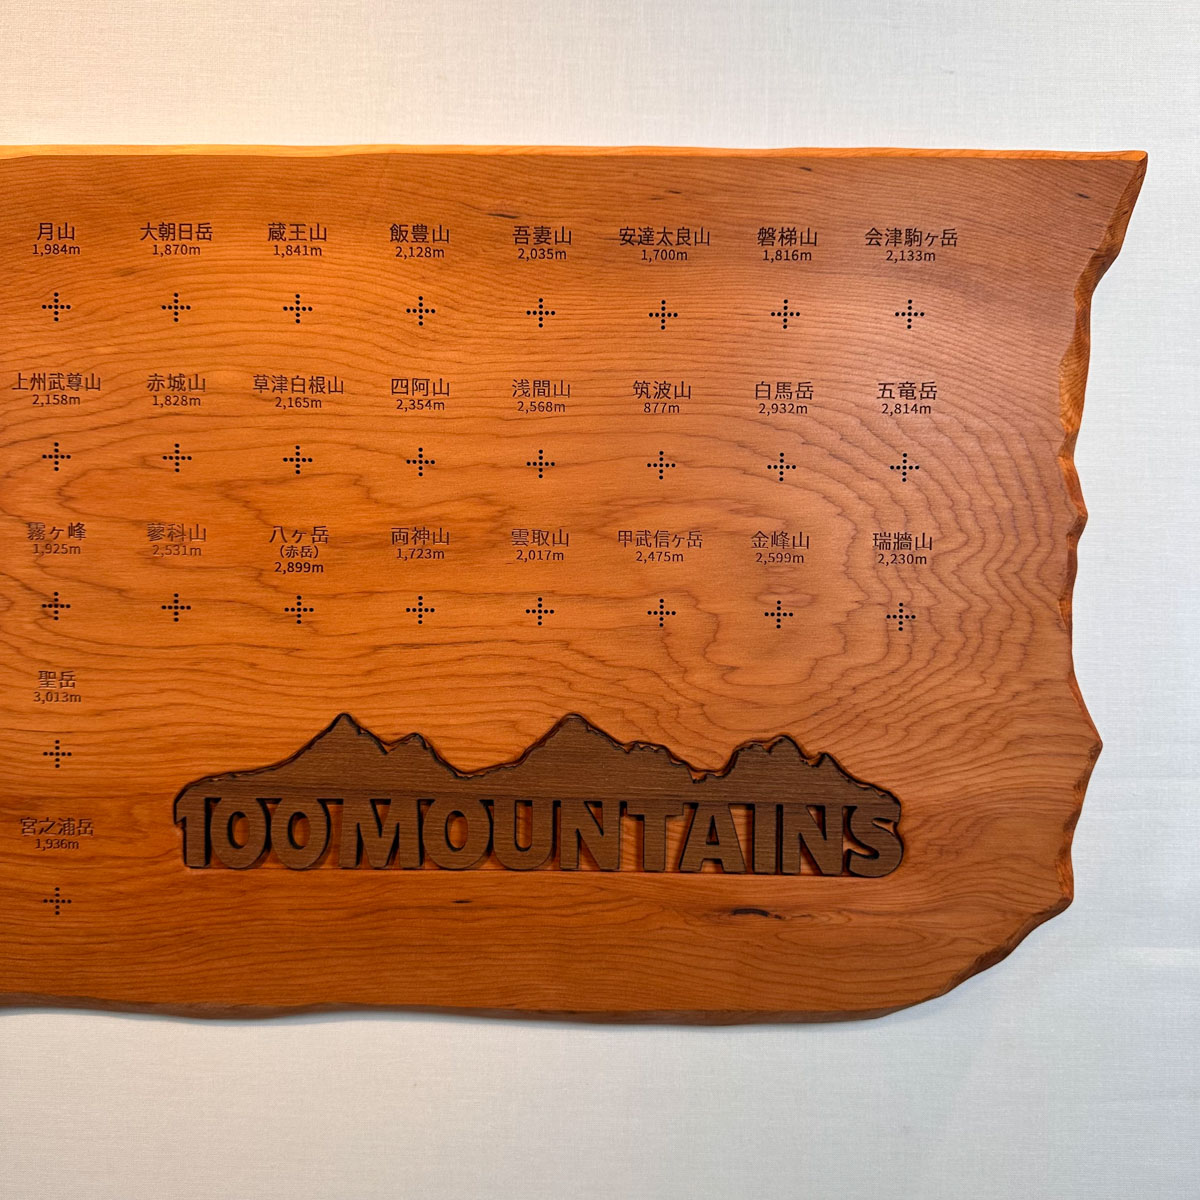 月山 大朝日岳 蔵王山 飯豊山 吾妻山 安達太良山 磐梯山 会津駒ヶ岳
1,984m 1,870m 1,841m 2,128m 2,035m 1,700m 1,816m 2,133m
上州武尊山 赤城山 草津白根山 四阿山 浅間山 筑波山 白馬岳 五竜岳
2,158m 1,828m 2,165m 2,354m 2,568m 877m 2,932m 2,814m
霧ヶ峰 蓼科山 八ヶ岳 両神山 雲取山 甲武信ヶ岳 金峰山 瑞牆山
(赤岳)
1,925m 2,531m 2,899m 1,723m 2,017m 2,475m 2,599m 2,230m
聖岳
3,013m
宮之浦岳
1,936m
100MOUNTAINS